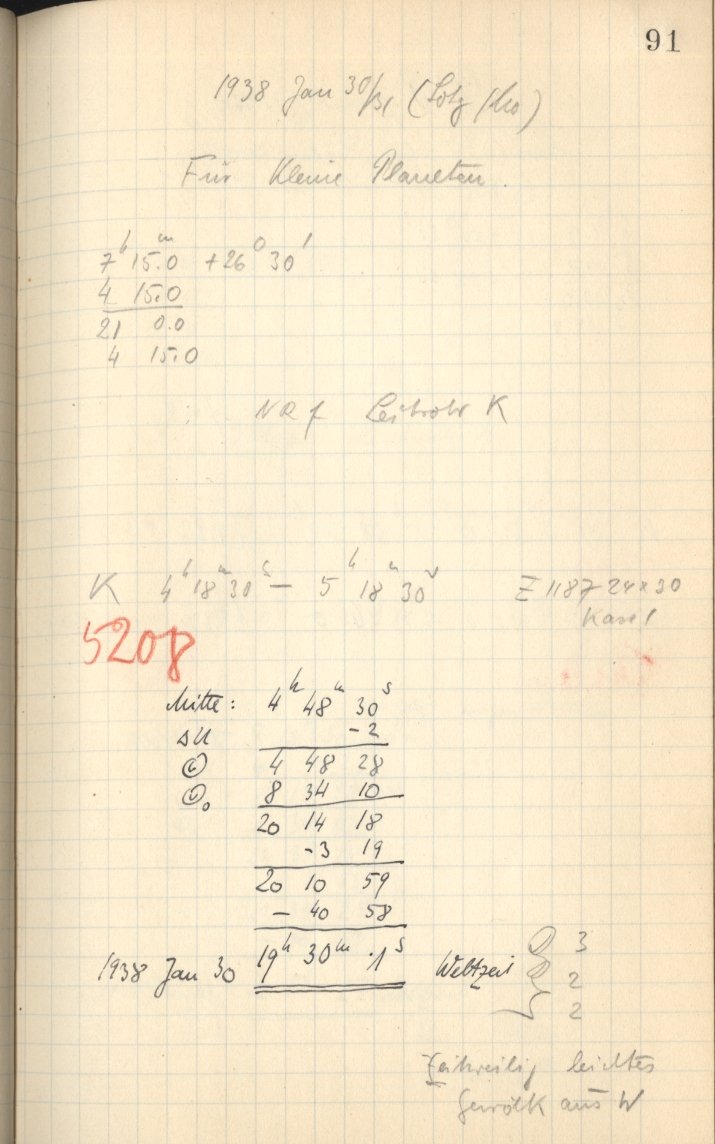 91
1938 Jan 30/31 (Lotz/Kro)
Für Kleine Planeten.
7ʰ 15ᵐ.0 +26° 30'
4 15.0
21 0.0
4 15.0
Leitrohr K
K 4ʰ 18ᵐ 30ˢ — 5ʰ 18ᵐ 30ˢ Z 1187 24x30
5208
Mitte: 4ʰ 48ᵐ 30ˢ
ΔU -2
4 48 28
8 34 10
20 14 18
-3 19
20 10 59
- 40 58
1938 Jan 30 19ʰ 30ᵐ .1ˢ Weltzeit
3
2
2
Zeitweilig leichtes
Gewölk aus W